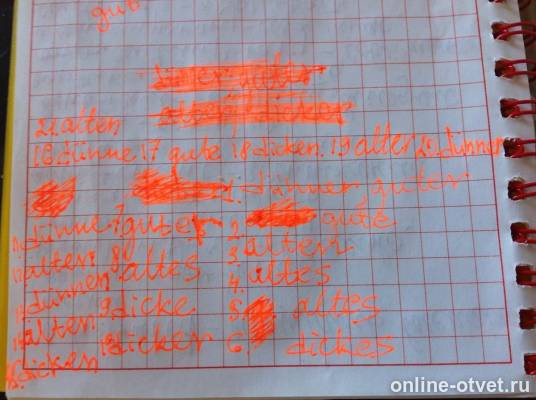 gut
21 alten
16 dünne 17 gute 18 dicken. 19 alter 20. dünner
1. dünner guter
11. dünne 7 guter 2. gute
12 alten 8 altes 3 alten
13 dünnen 4. altes
14 alten 9 dicke 5. altes
15. dicken 10 dicker 6. dickes
online-otvet.ru